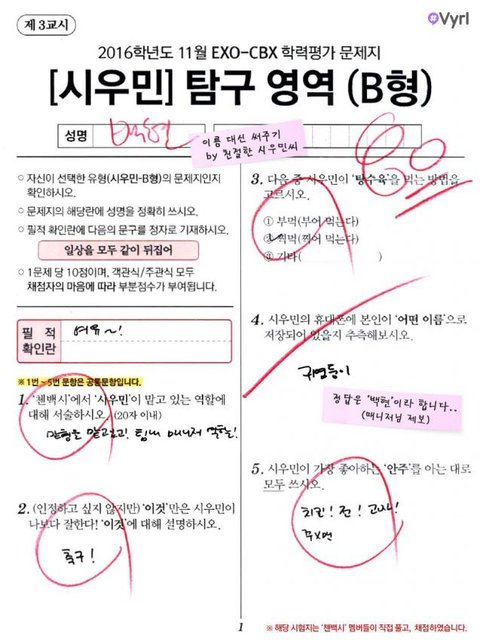 제 3교시
#Vyrl
2016학년도 11월 EXO-CBX 학력평가 문제지
[시우민] 탐구 영역 (B형)
성명
백현
이름 대신 써주기
by 친절한 시우민씨
○ 자신이 선택한 유형(시우민-B형)의 문제지인지
확인하시오.
○ 문제지의 해당란에 성명을 정확히 쓰시오.
○ 필적 확인란에 다음의 문구를 정자로 기재하시오.
일상을 모두 같이 뒤집어
○ 1문제 당 10점이며, 객관식/주관식 모두
채점자의 마음에 따라 부분점수가 부여됩니다.
필 적
확인란
여유~!
※ 1번 ~ 5번 문항은 공통문항입니다.
1. '첸백시'에서 '시우민'이 맡고 있는 역할에
대해 서술하시오. (20자 이내)
맏형을 맡고있고! 팀내 매니저 역할!
2. (인정하고 싶지 않지만) '이것'만은 시우민이
나보다 잘한다! '이것'에 대해 설명하시오.
축구!
80
3. 다음 중 시우민이 '탕수육'을 먹는 방법을
고르시오.
① 부먹(부어 먹는다)
② 찍먹(찍어 먹는다)
③ 기타( )
4. 시우민의 휴대폰에 본인이 '어떤 이름'으로
저장되어 있을지 추측해보시오.
귀염둥이
정답은 '백현'이라 합니다..
(매니저님 제보)
5. 시우민이 가장 좋아하는 '안주'를 아는 대로
모두 쓰시오.
치킨! 전!
1
※ 해당 시험지는 '첸백시' 멤버들이 직접 풀고, 채점하였습니다.